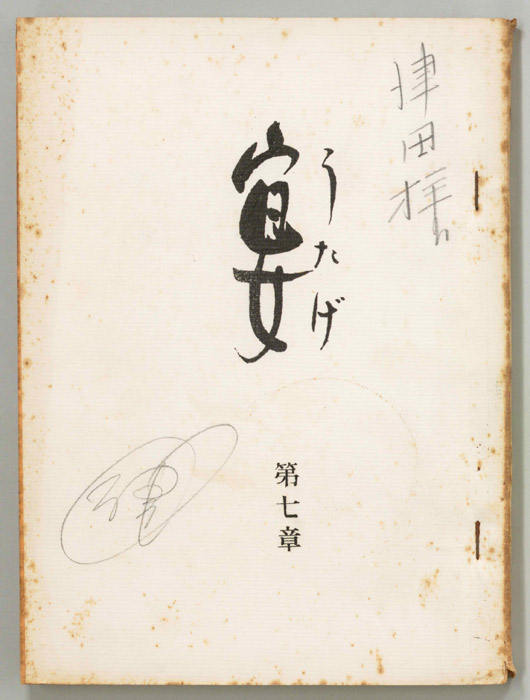 津田様
うたげ
宴
第七章
津